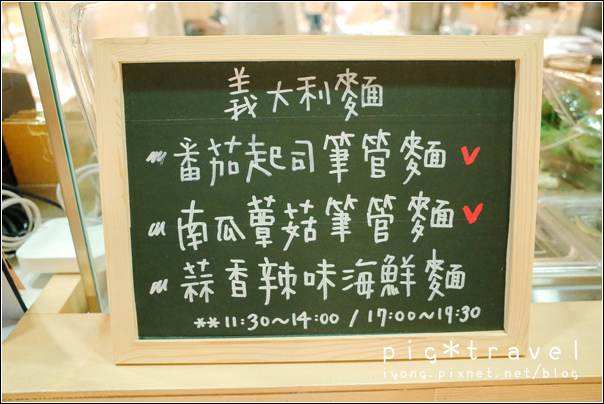 義大利麵
番茄起司筆管麵 ✓
南瓜蕈菇筆管麵 ✓
蒜香辣味海鮮麵
**11:30~14:00 / 17:00~19:30
pig*travel
iyong.pixnet.net/blog